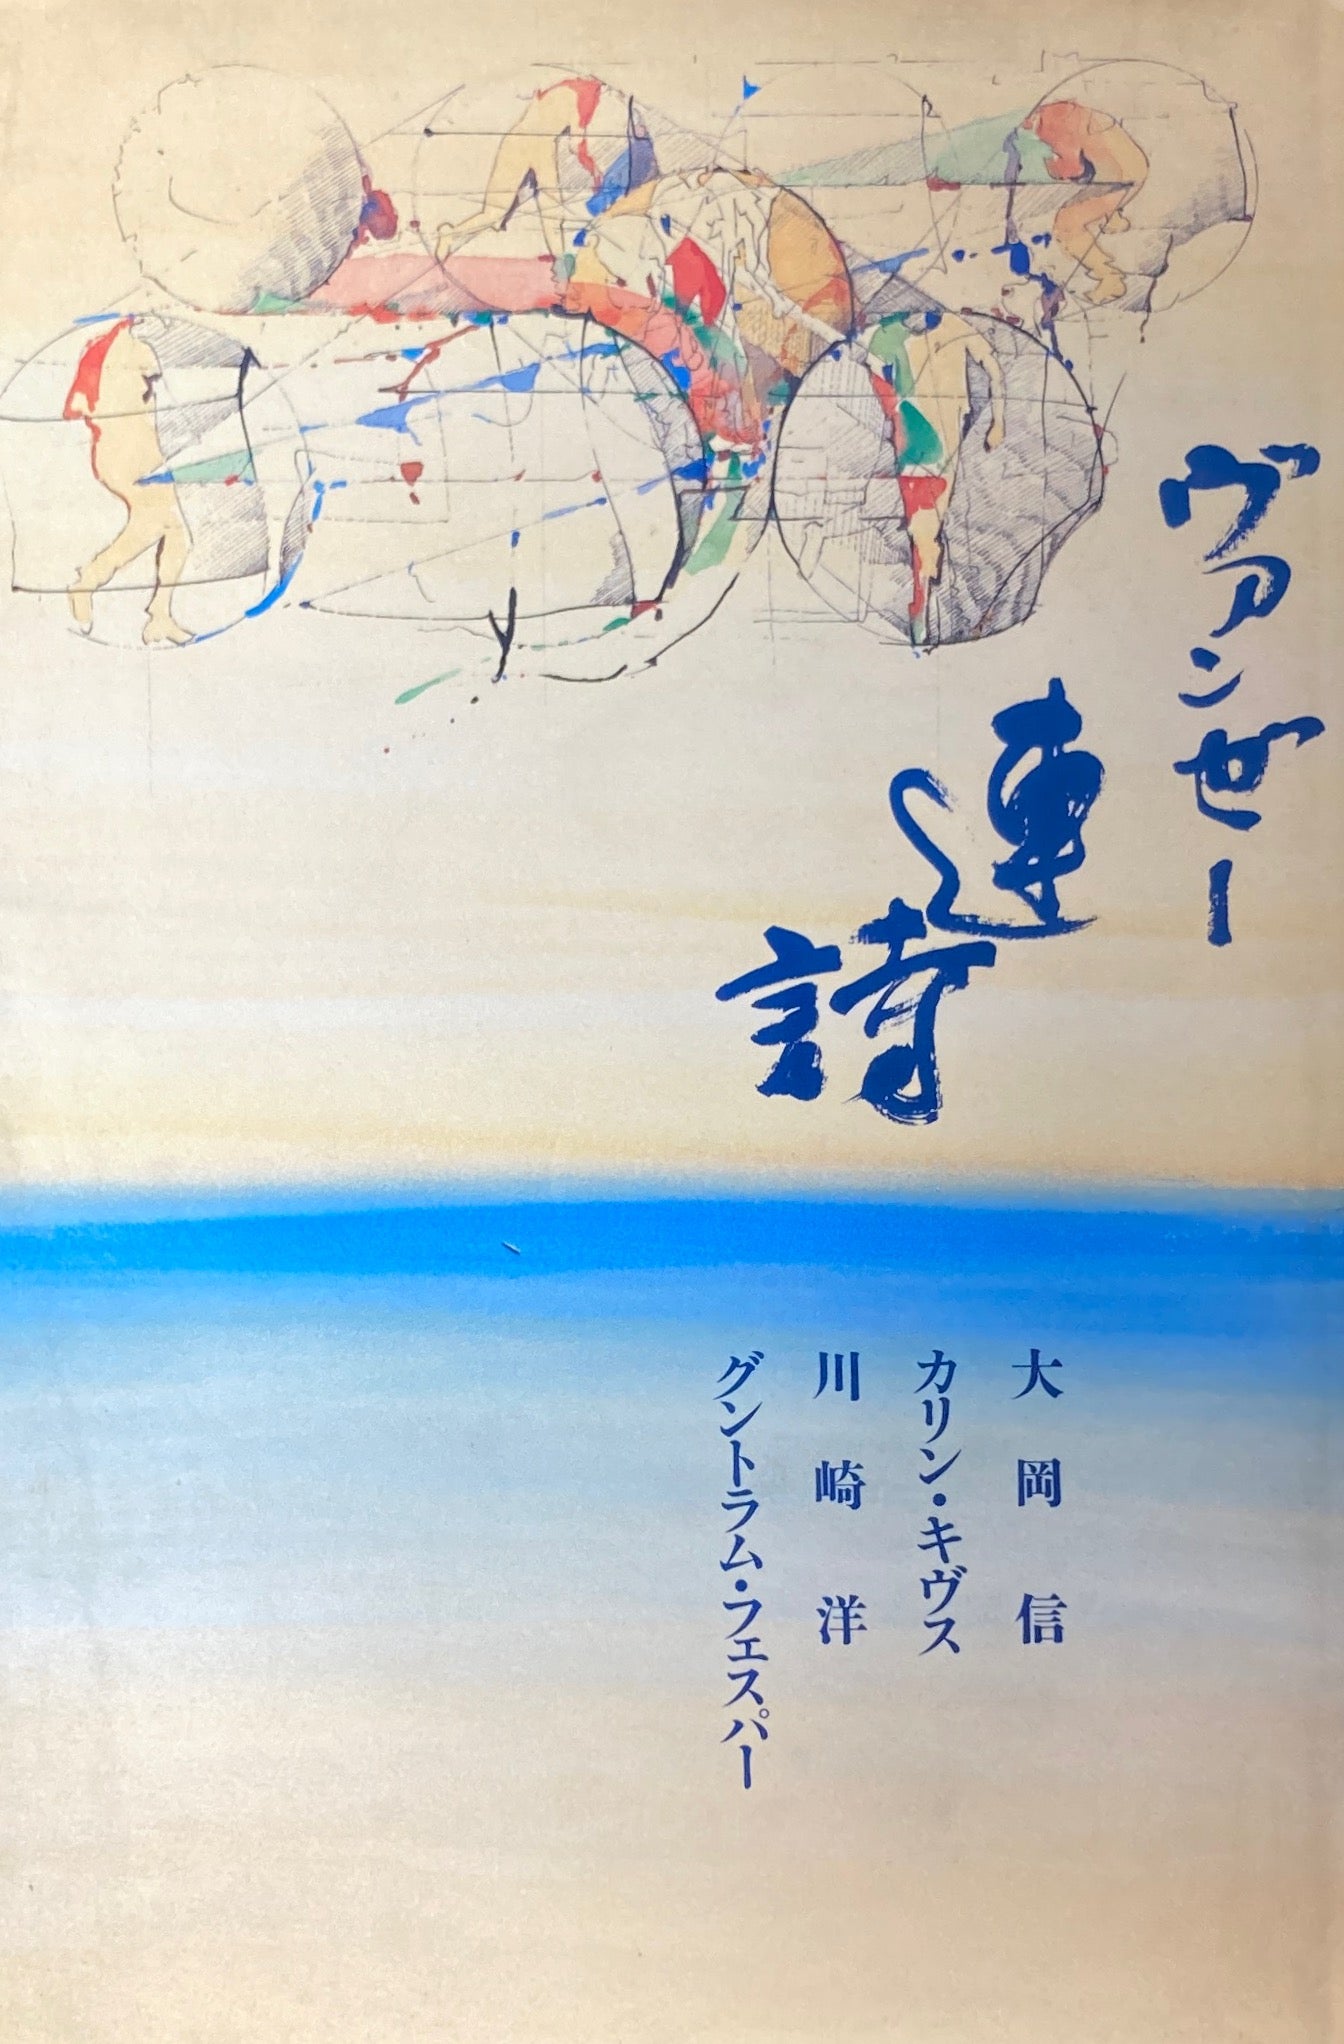 ヴァンゼー
連詩
大岡信
カリン・キヴス
川崎洋
グントラム・フェスパー